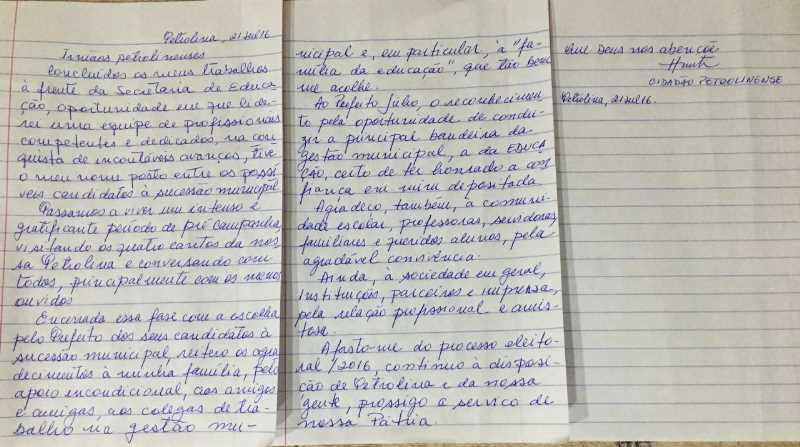 Petrolina, 21 jul 16
Irmãos petrolinenses
Concluídos os meus trabalhos
à frente da Secretaria de Educa
ção, oportunidade em que lide-
rei uma equipe de profissionais
competentes e dedicados, na con
quista de incontáveis avanços, tive
o meu nome posto entre os possí
veis candidatos à sucessão municipal
Passamos a viver um intenso e
gratificante período de pré campanha,
visitando os quatro cantos da nos
sa Petrolina e conversando com
todos, principalmente com os menos
ouvidos
Encerrada essa fase com a escolha
pelo Prefeito dos seus candidatos à
sucessão municipal, reitero os agra
decimentos à minha família, pelo
apoio incondicional, aos amigos
e amigas, aos colegas de tra-
balho na gestão mu-
nicipal e, em particular, à "fa-
mília da educação", que tão bem
me acolhe.
Ao Prefeito Julio, o reconhecimen
to pela oportunidade de condu-
zir a principal bandeira da
gestão municipal, a da EDUCA
ÇÃO, certo de ter honrado a con
fiança em mim depositada
Agradeço, também, à comuni-
dade escolar, professoras, servidores
familiares e queridos alunos, pela
agradável convivência.
Ainda, à sociedade em geral,
instituições, parceiros e imprensa,
pela relação profissional e amis-
tosa.
Afasto-me do processo eleito-
ral/2016, continuo à disposi-
ção de Petrolina e da nossa
gente, prossigo a serviço de
nossa Pátria.
Que Deus nos abençõe
CIDADÃO PETROLINENSE
Petrolina, 21 jul 16.